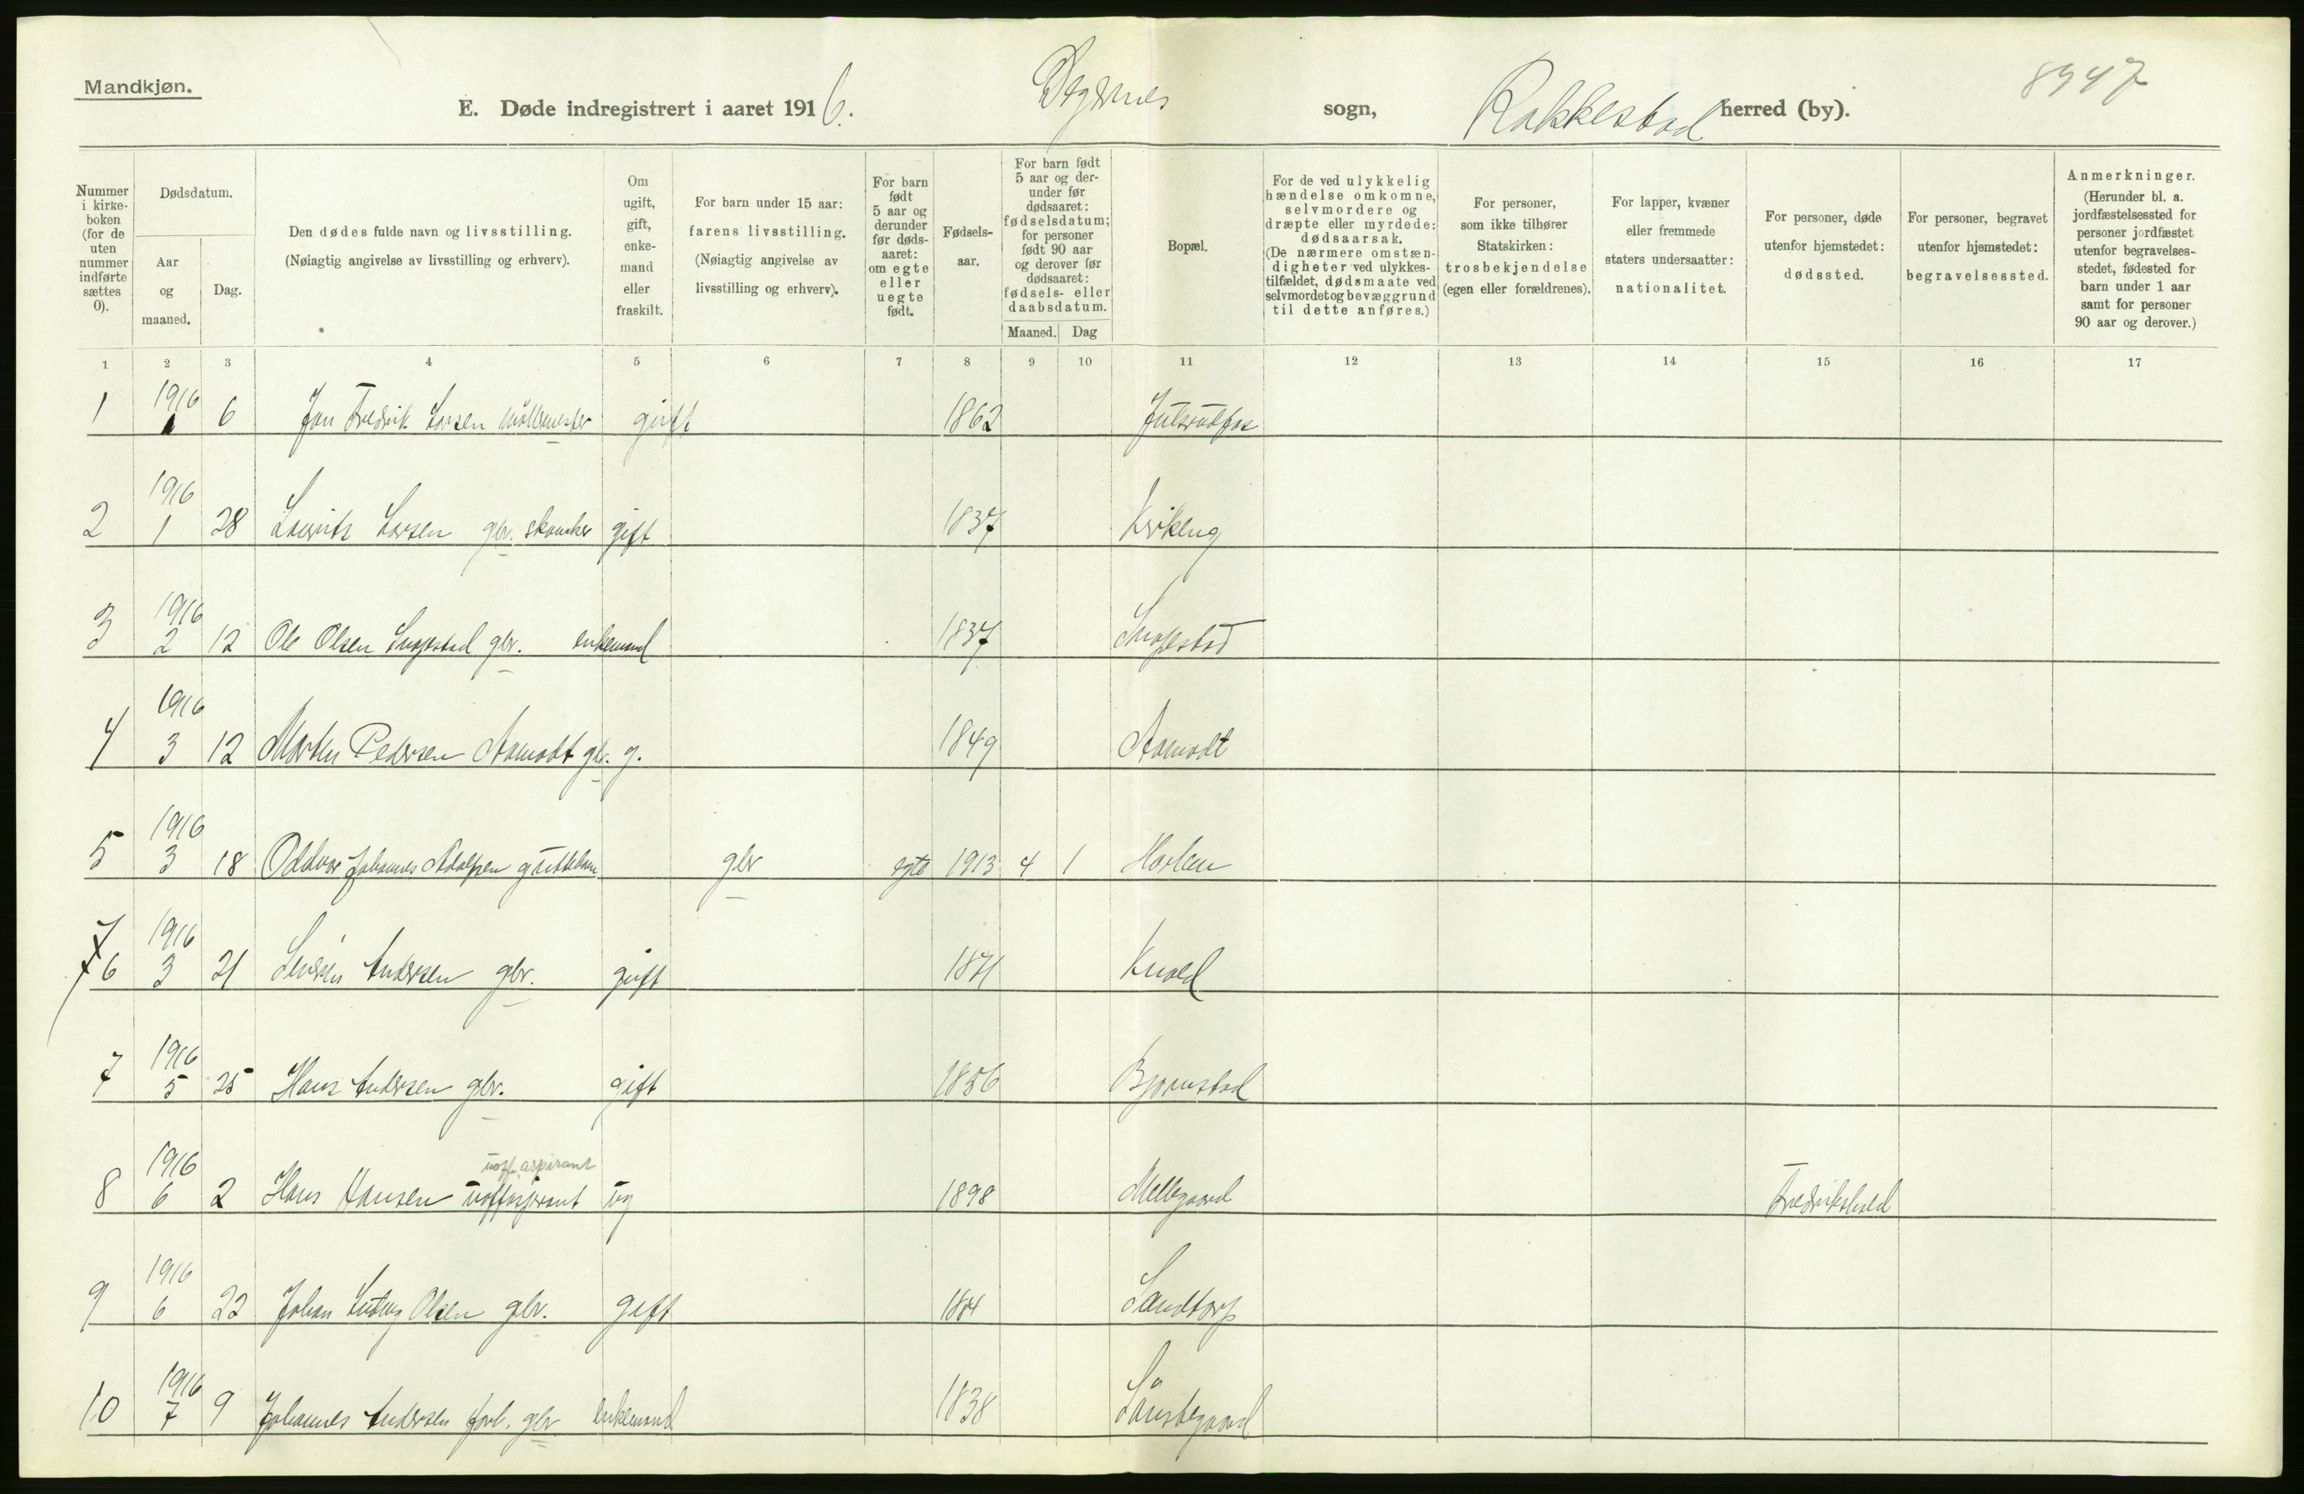 Mandkjøn.
E. Døde indregistrert i aaret 1916. Degernes sogn, Rakkestad herred (by). 8947
Nummer i kirkeboken (for de uten nummer indførte sættes 0).
Dødsdatum.
Aar og maaned.
Dag.
Den dødes fulde navn og livsstilling.
(Nøiagtig angivelse av livsstilling og erhverv).
Om ugift, gift, enkemand eller fraskilt.
For barn under 15 aar: farens livsstilling.
(Nøiagtig angivelse av livsstilling og erhverv).
For barn født 5 aar og derunder før dødsaaret: om egte eller uegte født.
Fødselsaar.
For barn født 5 aar og derunder før dødsaaret: fødselsdatum; for personer født 90 aar og derover før dødsaaret: fødsels- eller daabsdatum.
Maaned. Dag
Bopæl.
For de ved ulykkelig hændelse omkomne, selvmordere og dræpte eller myrdede: dødsaarsak.
(De nærmere omstændigheter ved ulykkestilfældet, dødsmaate ved selvmordet og bevæggrund til dette anføres.)
For personer, som ikke tilhører Statskirken: trosbekjendelse (egen eller forældrenes).
For lapper, kvæner eller fremmede staters undersaatter: nationalitet.
For personer, døde utenfor hjemstedet: dødssted.
For personer, begravet utenfor hjemstedet: begravelsessted.
Anmerkninger.
(Herunder bl. a. jordfæstelsessted for personer jordfæstet utenfor begravelsesstedet, fødested for barn under 1 aar samt for personer 90 aar og derover.)
1 2 3 4 5 6 7 8 9 10 11 12 13 14 15 16 17
1 1916 1 6 Jan Fredrik Larsen møllemester gift 1862
2 1916 1 28 Lauritz Larsen gbr. skomaker gift 1837 Kirkeng
3 1916 2 12 Ole Olsen gbr. enkemand 1837
4 1916 3 12 Martin Pedersen Aamodt gbr. g. 1849 Aamodt
5 1916 3 18 Oddvar Johannes guttebarn gbr egte 1913 4 1 Harlem
7 6 1916 3 21 Severin Andersen gbr. gift 1871 Knold
7 1916 5 25 Hans Andersen gbr. gift 1856 Bjørnstad
uoff. aspirant
8 1916 6 2 Hans Hansen uoffaspirant ug 1898 Mellegaard Fredrikshald
9 1916 6 22 Johan Ludvig Olsen gbr. gift Sandtorp
10 1916 7 9 Johannes Andersen forh. gbr enkemand 1838